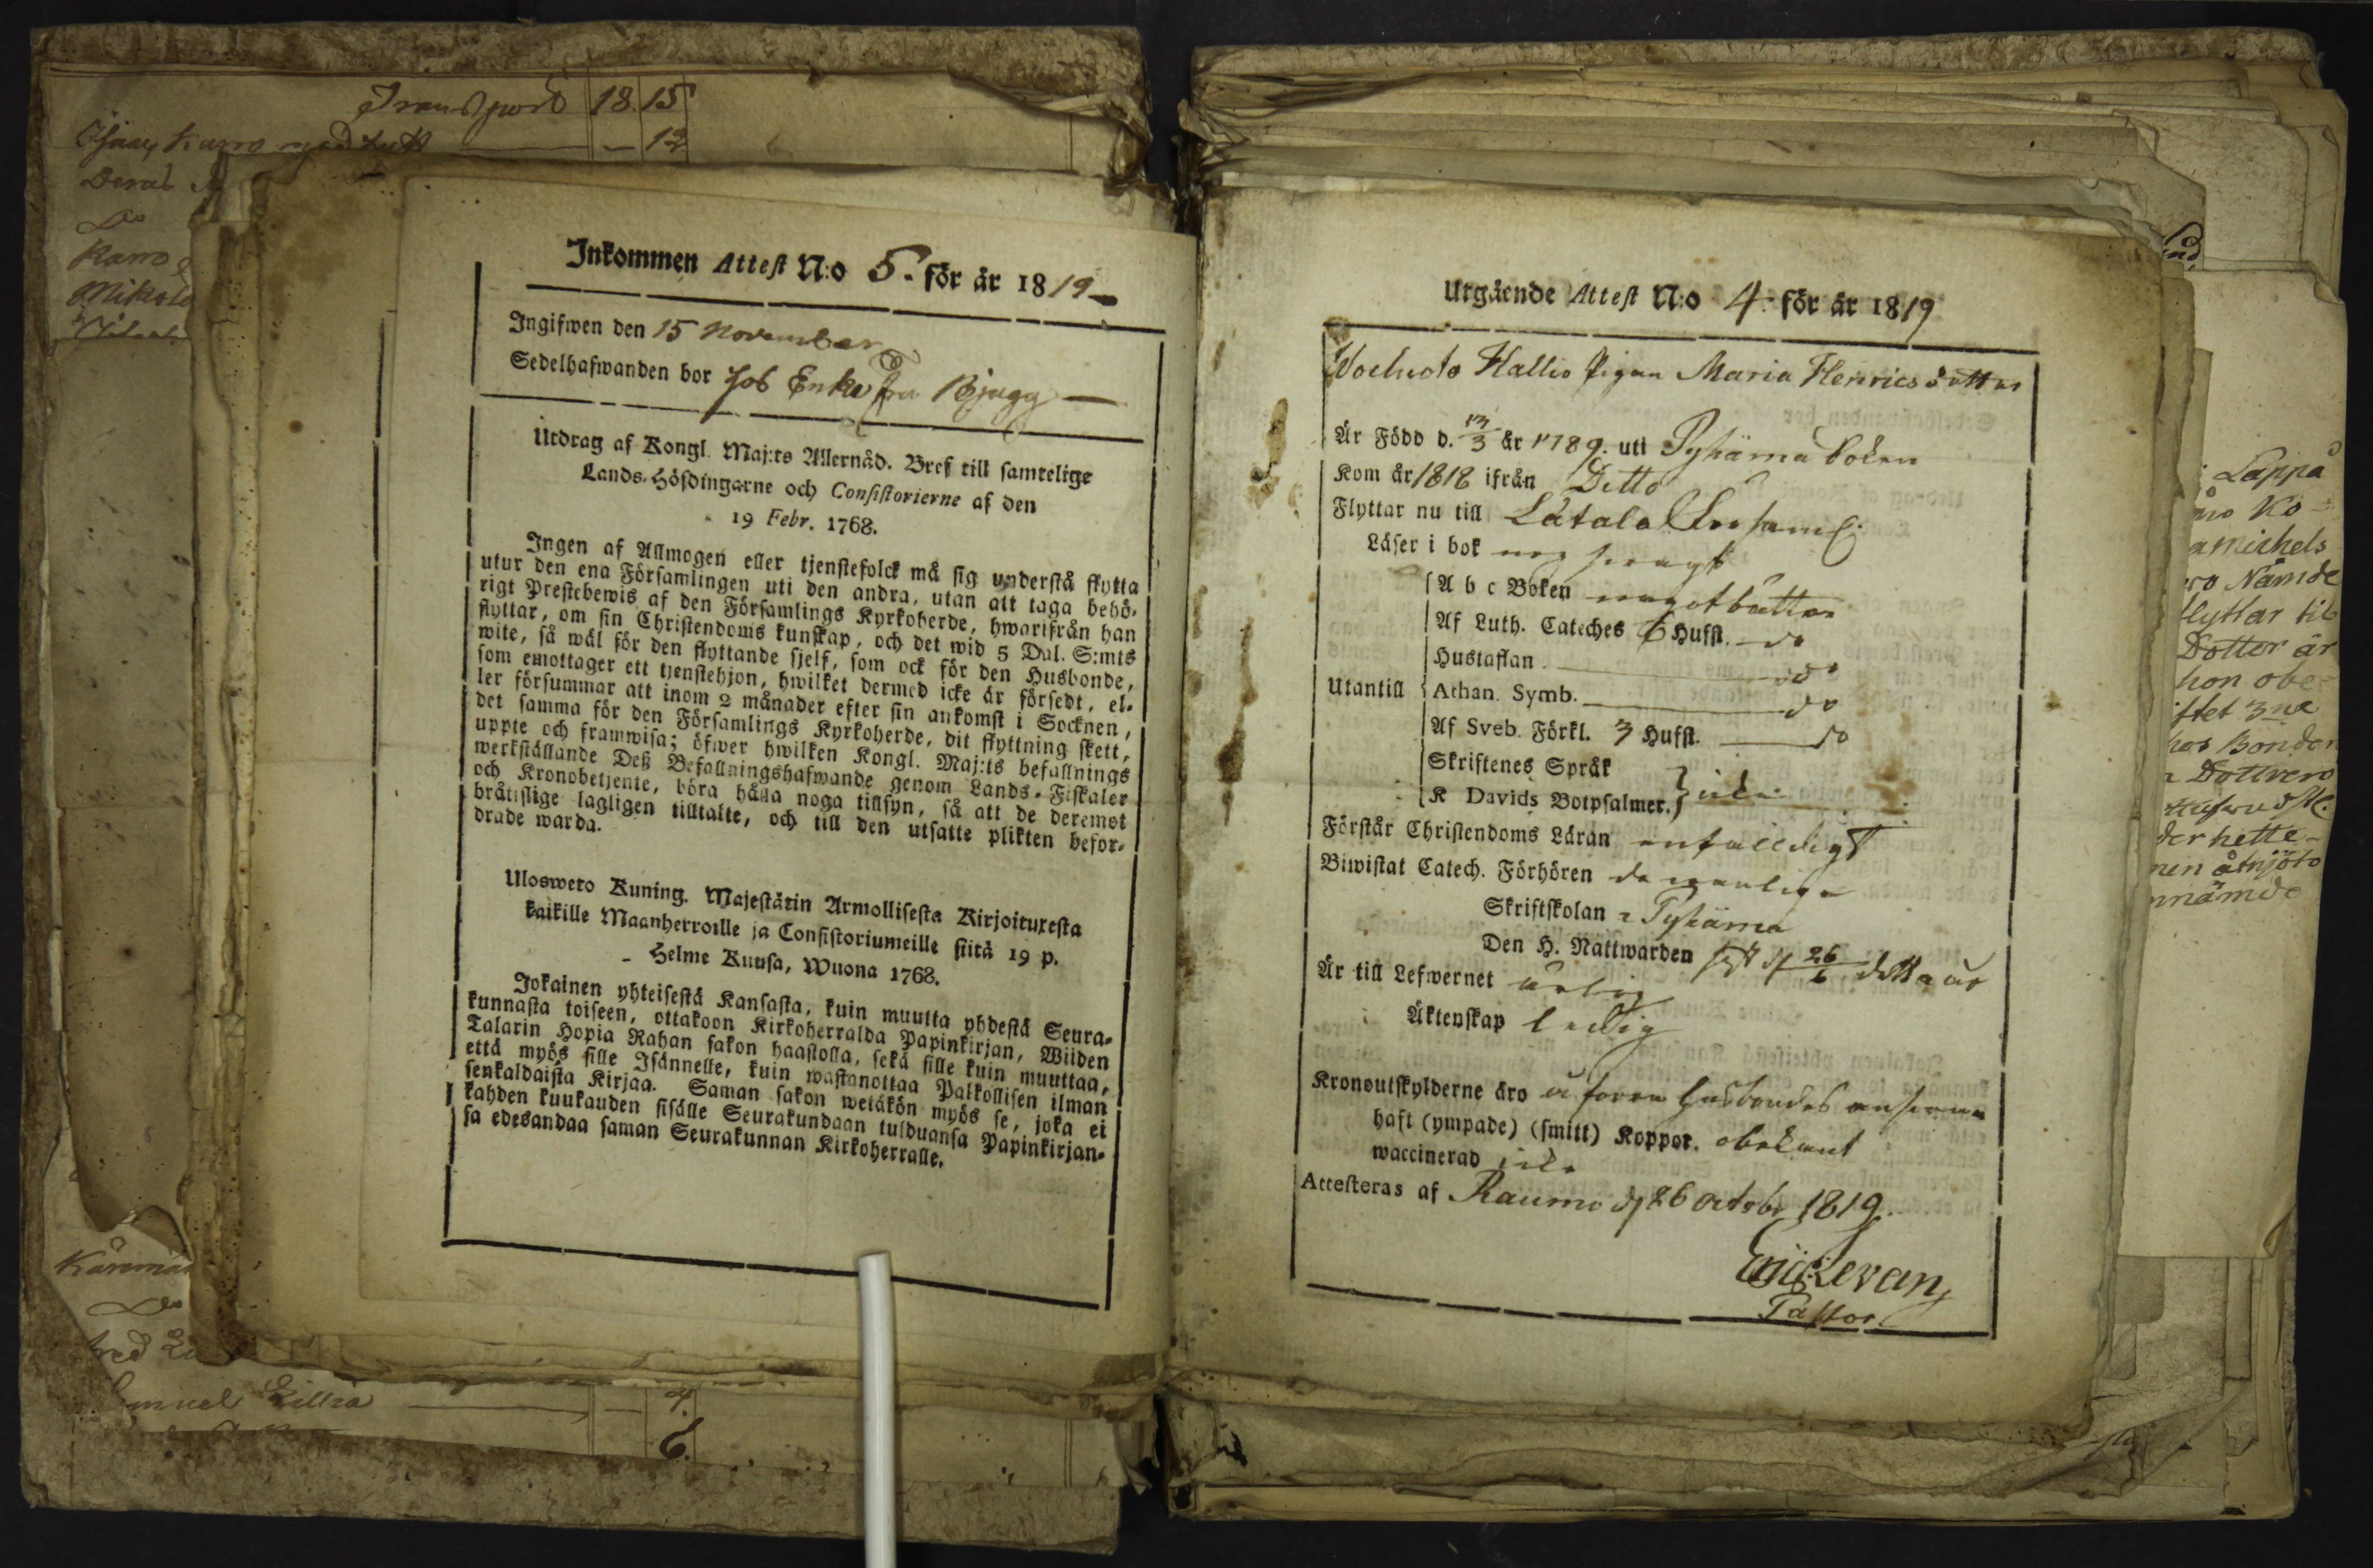 Transport 18. 15
– 12
Deras
Do
Karro
Mikola
Inkommen Attest N:o 5. för år 1819
Ingifwen den 15 November
Sedelhafwanden bor hos Enke fru Bjugg
Utdrag af Kongl. Maj:ts Allernåd. Bref till samtelige
Lands-Höfdingarne och Consistorierne af den
19 Febr. 1768.
Ingen af Allmogen eller tjenstefolck må sig understå flytta
utur den ena Församlingen uti den andra, utan att taga behö-
rigt Prestebewis af den Församlings Kyrkoherde, hwarifrån han
flyttar, om sin Christendoms kunskap, och det wid 5 Dal. S:mts
wite, så wäl för den flyttande sjelf, som ock för den Husbonde,
som emottager ett tjenstehjon, hwilket dermed icke är försedt, el-
ler försummar att inom 2 månader efter sin ankomst i Socknen,
det samma för den Församlings Kyrkoherde, dit flyttning skett,
uppte och framwisa; öfwer hwilken Kongl. Maj:ts befallnings
werkställande Deß Befallningshafwande genom Lands-Fiskaler
och Kronobetjente, böra hålla noga tillsyn, så att de deremot
bråtislige lagligen tilltalte, och till den utsatte plikten befor-
drade warda.
Ulosweto Kuning. Majestätin Armollisesta Kirjoituxesta
kaikille Maanherroille ja Consistoriumeille siitä 19 p.
Helme Kuusa, Wuona 1768.
Jokainen yhteisestä Kansasta, kuin muutta yhdestä Seura-
kunnasta toiseen, ottakoon Kirkoherralda Papinkirjan, Wiiden
Talarin Hopia Rahan sakon haastolla, sekä sille kuin muuttaa,
että myös sille Isännelle, kuin wastanottaa Palkollisen ilman
senkaldaista Kirjaa. Saman sakon wetäkön myös se, joka ei
kahden kuukauden sisälle Seurakundaan tulduansa Papinkirjan-
sa edesandaa saman Seurakunnan Kirkoherralle.
Do
Samuel Killia – 4.
6.
Utgående Attest N:o 4. för år 1819
Hallio Pigan Maria Henricsdotter
Är Född d. 13/3 år 1789. uti Pyhäma boken
Kom år 1818 ifrån Ditto
Flyttar nu till Låtala Församl:
Läser i bok nog swagt
A b c Boken något bättre
Af Luth. Cateches 6 Hufst. do
Hustaflan do
Utantill Athan. Symb. do
Af Sveb. Förkl. 3 Hufst. do
Skriftenes Språk
K Davids Botpsalmer. } icke
Förstår Christendoms Läran enfalldigt
Biwistat Catech. Förhören de wanliga
Skriftskolan i Pyhäma
Den H. Nattwarden sist d 26/6 detta år
Är till Lefwernet ärlig
Äktenskap ledig
Kronoutskylderne äro å förra husbondes answar
haft (ympade) (smitt) Koppor. obekant
waccinerad icke
Attesteras af Raumo d 26 octobr 1819.
Pastor
Lappa
Ko-
michels
Nämde
flyttar til
Dotter är
hon obe-
3ne
Bondan
hette
åtnjöto
nämde